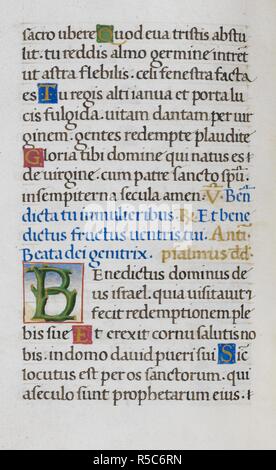 sacro ubere Quod eua tristis abstu
lit. tu reddis almo germine intrẽt
ut astra flebilis. celi fenestra facta
es Tu regis alti ianua et porta lu
cis fulgida. uitam dantam per uir
ginem. gentes redempte plaudite
Gloria tibi domine qui natus es
de uirgine. cum patre sancto spũ.
in sempiterna secula amen. V. Beñ
dicta tu in mulieribus. R. Et bene
dictus fructus uentris tui. Antiͥ.
Beata dei genitrix. psalmus d̃d.
Benedictus dominus de
us israel. quia uisitauit
fecit redemptionem ple
bis sue Et erexit cornu salutis no
bis. in domo dauid pueri sui Sic
locutus est per os sanctorum. qui
a seculo sunt prophetarum eius.
alamy
Image ID: R5C6RN
www.alamy.com